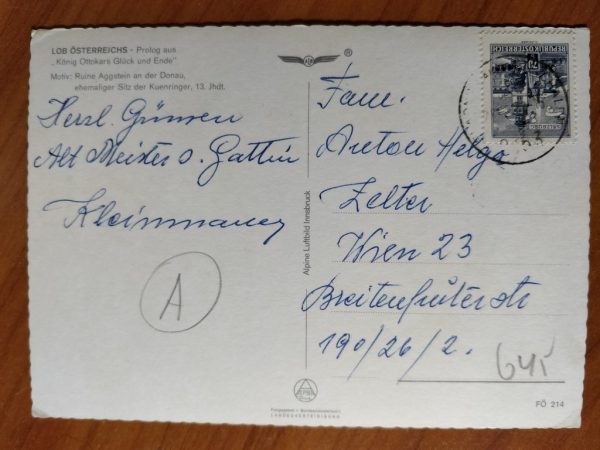 LOB ÖSTERREICHS - Prolog aus
„König Ottokars Glück und Ende"
Motiv: Ruine Aggstein an der Donau,
ehemaliger Sitz der Kuenringer, 13. Jhdt.
Herzl.
Alt Meister u. Gattin
A
Alpine Luftbild Innsbruck
®
REPUBLIK ÖSTERREICH
Fam.
Anton Helga
Zelter
Wien 23
Breitenfurterstr
190/26/2.
645
LANDESVERTEIDIGUNG
FÖ 214